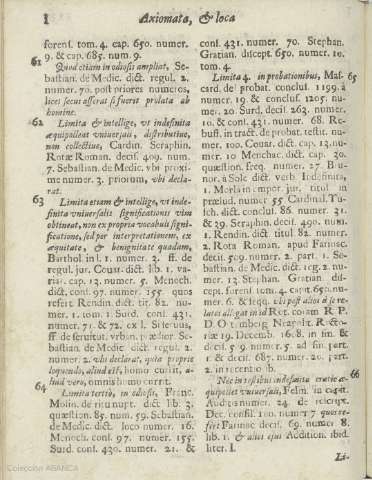 I Axiomata, & loca
forens. tom. 4. cap. 650. numer.
9. & cap. 685. num. 9.
61 Quod etiam in odiosis ampliat, Se-
bastian. de Medic. dict. regul. 2.
numer. 70. post priores numeros,
licet secus asserat si fuerit prolata ab
homine.
62 Limita & intellige, vt indefinita
æquipolleat vniuersali, distributiue,
non collectiue, Cardin. Seraphin.
Rotæ Roman. decis. 409. num.
7. Sebastian. de Medic. vbi proxi-
me numer. 3. priorum, vbi decla-
rat.
63 Limita etiam & intellige, vt inde-
finita vniuersalis significationis vim
obtineat, non ex propria vocabuli signi-
ficatione, sed per interpretationem, ex
æquitate, & benignitate quadam,
Barthol. in l. 1. numer. 3. ff. de
regul. iur. Couar. dict. lib. 1. va-
riar. cap. 13. numer. 5. Menoch.
dict. cons. 97. numer. 157. quos
refert Rendin. dict. tit. 82. nu-
mer. 1. tom. 1. Surd. cons. 431.
numer. 71. & 72. ex l. Si seruus,
ff. de seruitut. vrban. prædior. Se-
bastian. de Medic. dict. regul. 2.
numer. 2. vbi declarat, quia proprie
loquendo, aliud est, homo currit, a-
liud vero, omnis homo currit.
64 Limita tertio, in odiosis, Franc.
Molin. de rit. nupt. dict. lib. 3.
quæstion. 85. num. 59. Sebastian.
de Medic. dict. loco numer. 16.
Menoch. cons. 97. numer. 155.
Surd. cons. 430. numer. 21. &
cons. 431. numer. 70. Stephan.
Gratian. discept. 650. numer. 10.
tom. 4.
Limita 4. in probationibus, Mas- 65
card. de probat. conclus. 1199. à
numer. 19. & conclus. 1205. nu-
mer. 20. Surd. decis. 263. numer.
10. & cons. 431. numer. 68. Re-
buff. in tract. de probat. testit. nu-
mer. 100. Couar. dict. cap. 13. nu-
mer. 10. Menchac. dict. cap. 30.
quæstion. freq. numer. 27. Bu-
nor. a Sole dict. verb. Indefinita,
1. Morla in empor. iur. titul. in
prælud. numer. 55. Cardinal. Tu-
sch. dict. conclus. 86. numer. 31.
& 39. Seraphin. decis. 490. num.
1. Rendin. dict. titul. 82. numer.
2. Rota Roman. apud Farinac.
decis. 509. numer. 2. part. 1. Se-
bastian. de Medic. dict. reg. 2. nu-
mer. 13. Stephan. Gratian. dis-
cep. forens. tom. 4. cap. 650. nu-
mer. 6. & seqq. vbi post alios à se re-
latos allegat in id Rot. coram R. P.
D. Otthembog. Neapolit.
19. Decemb. 1608. in fin. &
decis. 59. numer. 5. ad fin. part.
1. & decis. 687. numer. 20. part.
2. in recentiorib.
66
Felin. in capit.
Audiuis numer. 24. de rescript.
Dec. consil. 180. numer. 7. quos re-
fert Farinac. decis. 69. numer. 8.
lib. 1. & alios ejus Addition. ibid.
liter. I.
Li-
Colección ABANCA